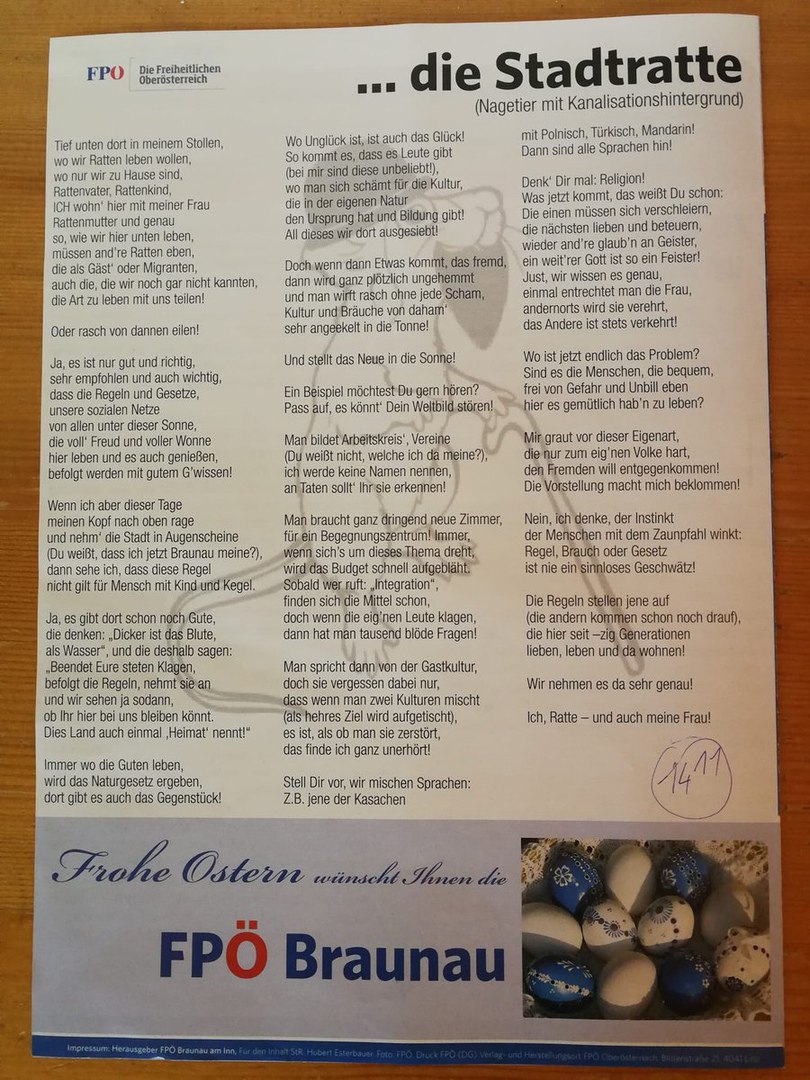 FPÖ
Die Freiheitlichen
Oberösterreich
... die Stadtratte
(Nagetier mit Kanalisationshintergrund)
Tief unten dort in meinem Stollen,
wo wir Ratten leben wollen,
wo nur wir zu Hause sind,
Rattenvater, Rattenkind,
ICH wohn' hier mit meiner Frau
Rattenmutter und genau
so, wie wir hier unten leben,
müssen and're Ratten eben,
die als Gäst' oder Migranten,
auch die, die wir noch gar nicht kannten,
die Art zu leben mit uns teilen!
Oder rasch von dannen eilen!
Ja, es ist nur gut und richtig,
sehr empfohlen und auch wichtig,
dass die Regeln und Gesetze,
unsere sozialen Netze
von allen unter dieser Sonne,
die voll' Freud und voller Wonne
hier leben und es auch genießen,
befolgt werden mit gutem G'wissen!
Wenn ich aber dieser Tage
meinen Kopf nach oben rage
und nehm' die Stadt in Augenscheine
(Du weißt, dass ich jetzt Braunau meine?),
dann sehe ich, dass diese Regel
nicht gilt für Mensch mit Kind und Kegel.
Ja, es gibt dort schon noch Gute,
die denken: „Dicker ist das Blute,
als Wasser“, und die deshalb sagen:
„Beendet Eure steten Klagen,
befolgt die Regeln, nehmt sie an
und wir sehen ja sodann,
ob Ihr hier bei uns bleiben könnt.
Dies Land auch einmal ‚Heimat' nennt!“
Immer wo die Guten leben,
wird das Naturgesetz ergeben,
dort gibt es auch das Gegenstück!
Wo Unglück ist, ist auch das Glück!
So kommt es, dass es Leute gibt
(bei mir sind diese unbeliebt!),
wo man sich schämt für die Kultur,
die in der eigenen Natur
den Ursprung hat und Bildung gibt!
All dieses wir dort ausgesiebt!
Doch wenn dann Etwas kommt, das fremd,
dann wird ganz plötzlich ungehemmt
und man wirft rasch ohne jede Scham,
Kultur und Bräuche von daham'
sehr angeekelt in die Tonne!
Und stellt das Neue in die Sonne!
Ein Beispiel möchtest Du gern hören?
Pass auf, es könnt' Dein Weltbild stören!
Man bildet Arbeitskreis', Vereine
(Du weißt nicht, welche ich da meine?),
ich werde keine Namen nennen,
an Taten sollt' Ihr sie erkennen!
Man braucht ganz dringend neue Zimmer,
für ein Begegnungszentrum! Immer,
wenn sich's um dieses Thema dreht,
wird das Budget schnell aufgebläht.
Sobald wer ruft: „Integration“,
finden sich die Mittel schon,
doch wenn die eig'nen Leute klagen,
dann hat man tausend blöde Fragen!
Man spricht dann von der Gastkultur,
doch sie vergessen dabei nur,
dass wenn man zwei Kulturen mischt
(als hehres Ziel wird aufgetischt),
es ist, als ob man sie zerstört,
das finde ich ganz unerhört!
Stell Dir vor, wir mischen Sprachen:
Z.B. jene der Kasachen
mit Polnisch, Türkisch, Mandarin!
Dann sind alle Sprachen hin!
Denk' Dir mal: Religion!
Was jetzt kommt, das weißt Du schon:
Die einen müssen sich verschleiern,
die nächsten lieben und beteuern,
wieder and're glaub'n an Geister,
ein weit'rer Gott ist so ein Feister!
Just, wir wissen es genau,
einmal entrechtet man die Frau,
andernorts wird sie verehrt,
das Andere ist stets verkehrt!
Wo ist jetzt endlich das Problem?
Sind es die Menschen, die bequem,
frei von Gefahr und Unbill eben
hier es gemütlich hab'n zu leben?
Mir graut vor dieser Eigenart,
die nur zum eig'nen Volke hart,
den Fremden will entgegenkommen!
Die Vorstellung macht mich beklommen!
Nein, ich denke, der Instinkt
der Menschen mit dem Zaunpfahl winkt:
Regel, Brauch oder Gesetz
ist nie ein sinnloses Geschwätz!
Die Regeln stellen jene auf
(die andern kommen schon noch drauf),
die hier seit –zig Generationen
lieben, leben und da wohnen!
Wir nehmen es da sehr genau!
Ich, Ratte – und auch meine Frau!
1411
Frohe Ostern wünscht Ihnen die
FPÖ Braunau
Impressum: Herausgeber FPÖ Braunau am Inn, Für den Inhalt StR. Hubert Esterbauer Foto: FPÖ, Druck FPÖ (DG) Verlag- und Herstellungsort FPÖ Oberösterreich, Blütenstraße 21, 4041 Linz